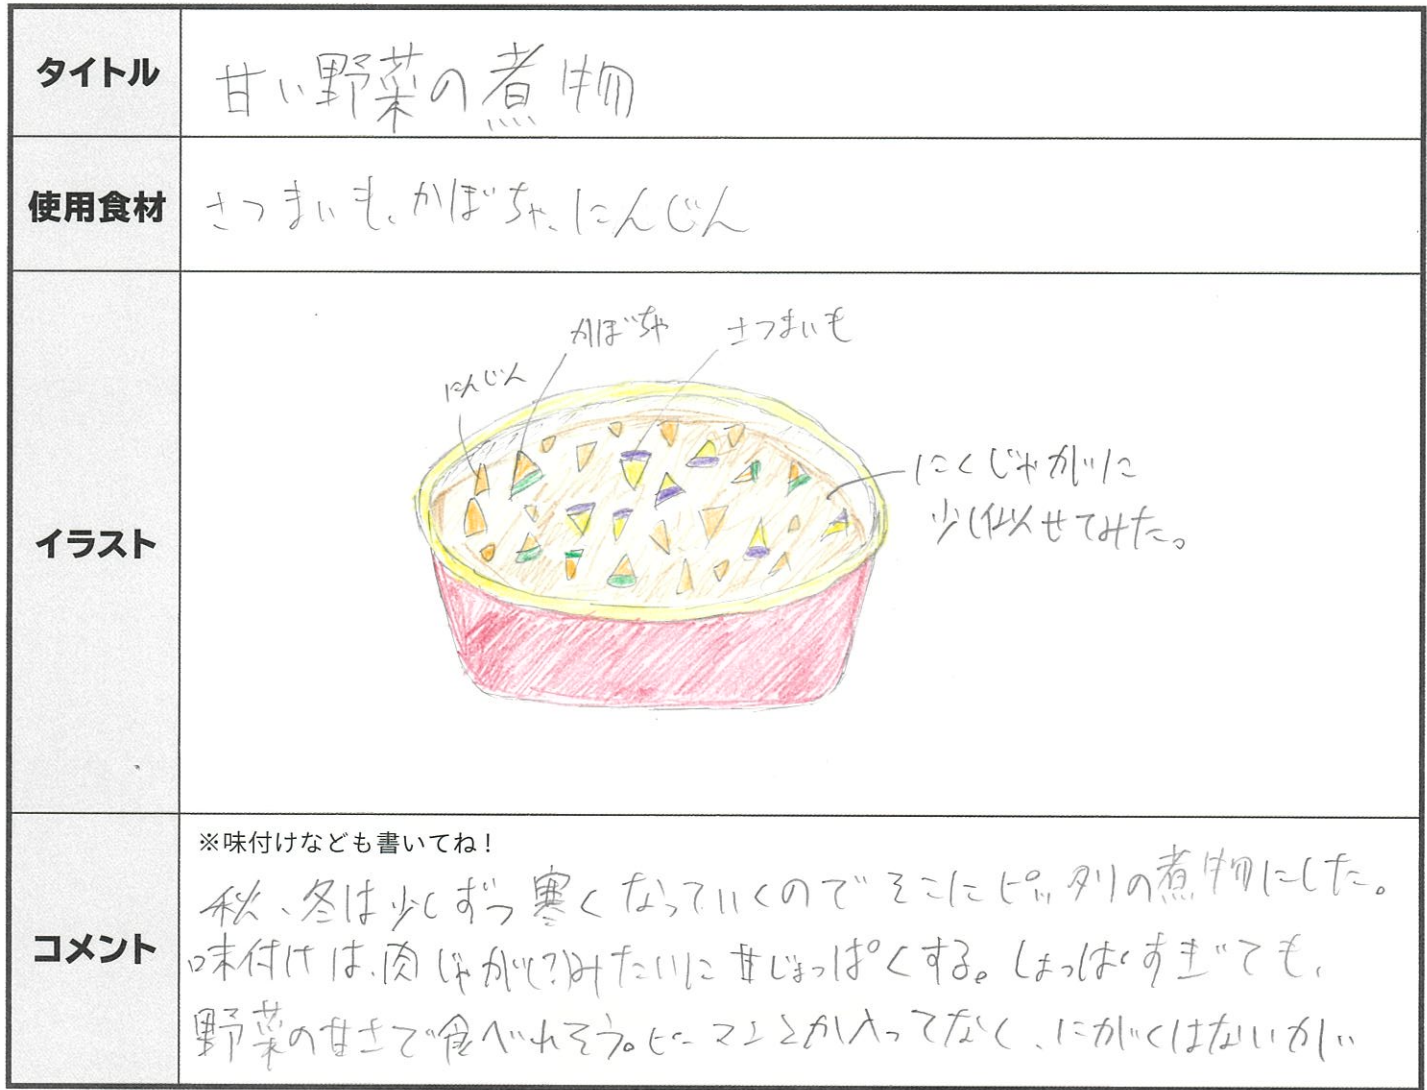 タイトル
甘い野菜の煮物
使用食材
さつまいも、かぼちゃ、にんじん
イラスト
かぼちゃ
さつまいも
にんじん
にくじゃがに
少し似せてみた。
コメント
※味付けなども書いてね!
秋、冬は少しずつ寒くなっていくのでそこにピッタリの煮物にした。
味付けは、肉じゃが(?)みたいに甘じょっぱくする。しょっぱすぎても、
野菜の甘さで食べれそう。ピーマンとか入ってなく、にがくはない